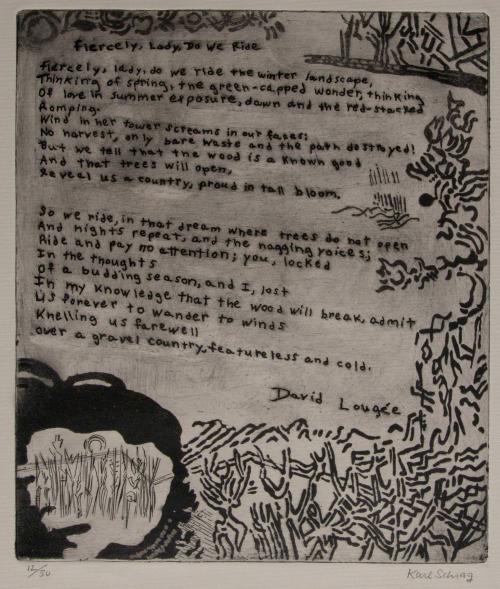 Fiercely, Lady, Do We Ride
Fiercely, lady, do we ride the winter landscape,
Thinking of spring, the green-capped wonder, thinking
Of love in summer exposure, dawn and the red-stacked
Romping.
Wind in her tower screams in our faces:
No harvest, only bare waste and the path destroyed!
But we tell that the wood is a known good
And that trees will open,
Reveal us a country, proud in tall bloom.
So we ride, in that dream where trees do not open
And nights repeat, and the nagging voices;
Ride and pay no attention; you, locked
In the thoughts
Of a budding season, and I, lost
In my knowledge that the wood will break, admit
Us forever to wander to winds
Knelling us farewell
over a gravel country, featureless and cold.
David Lougée
12/50
Karl Schrag